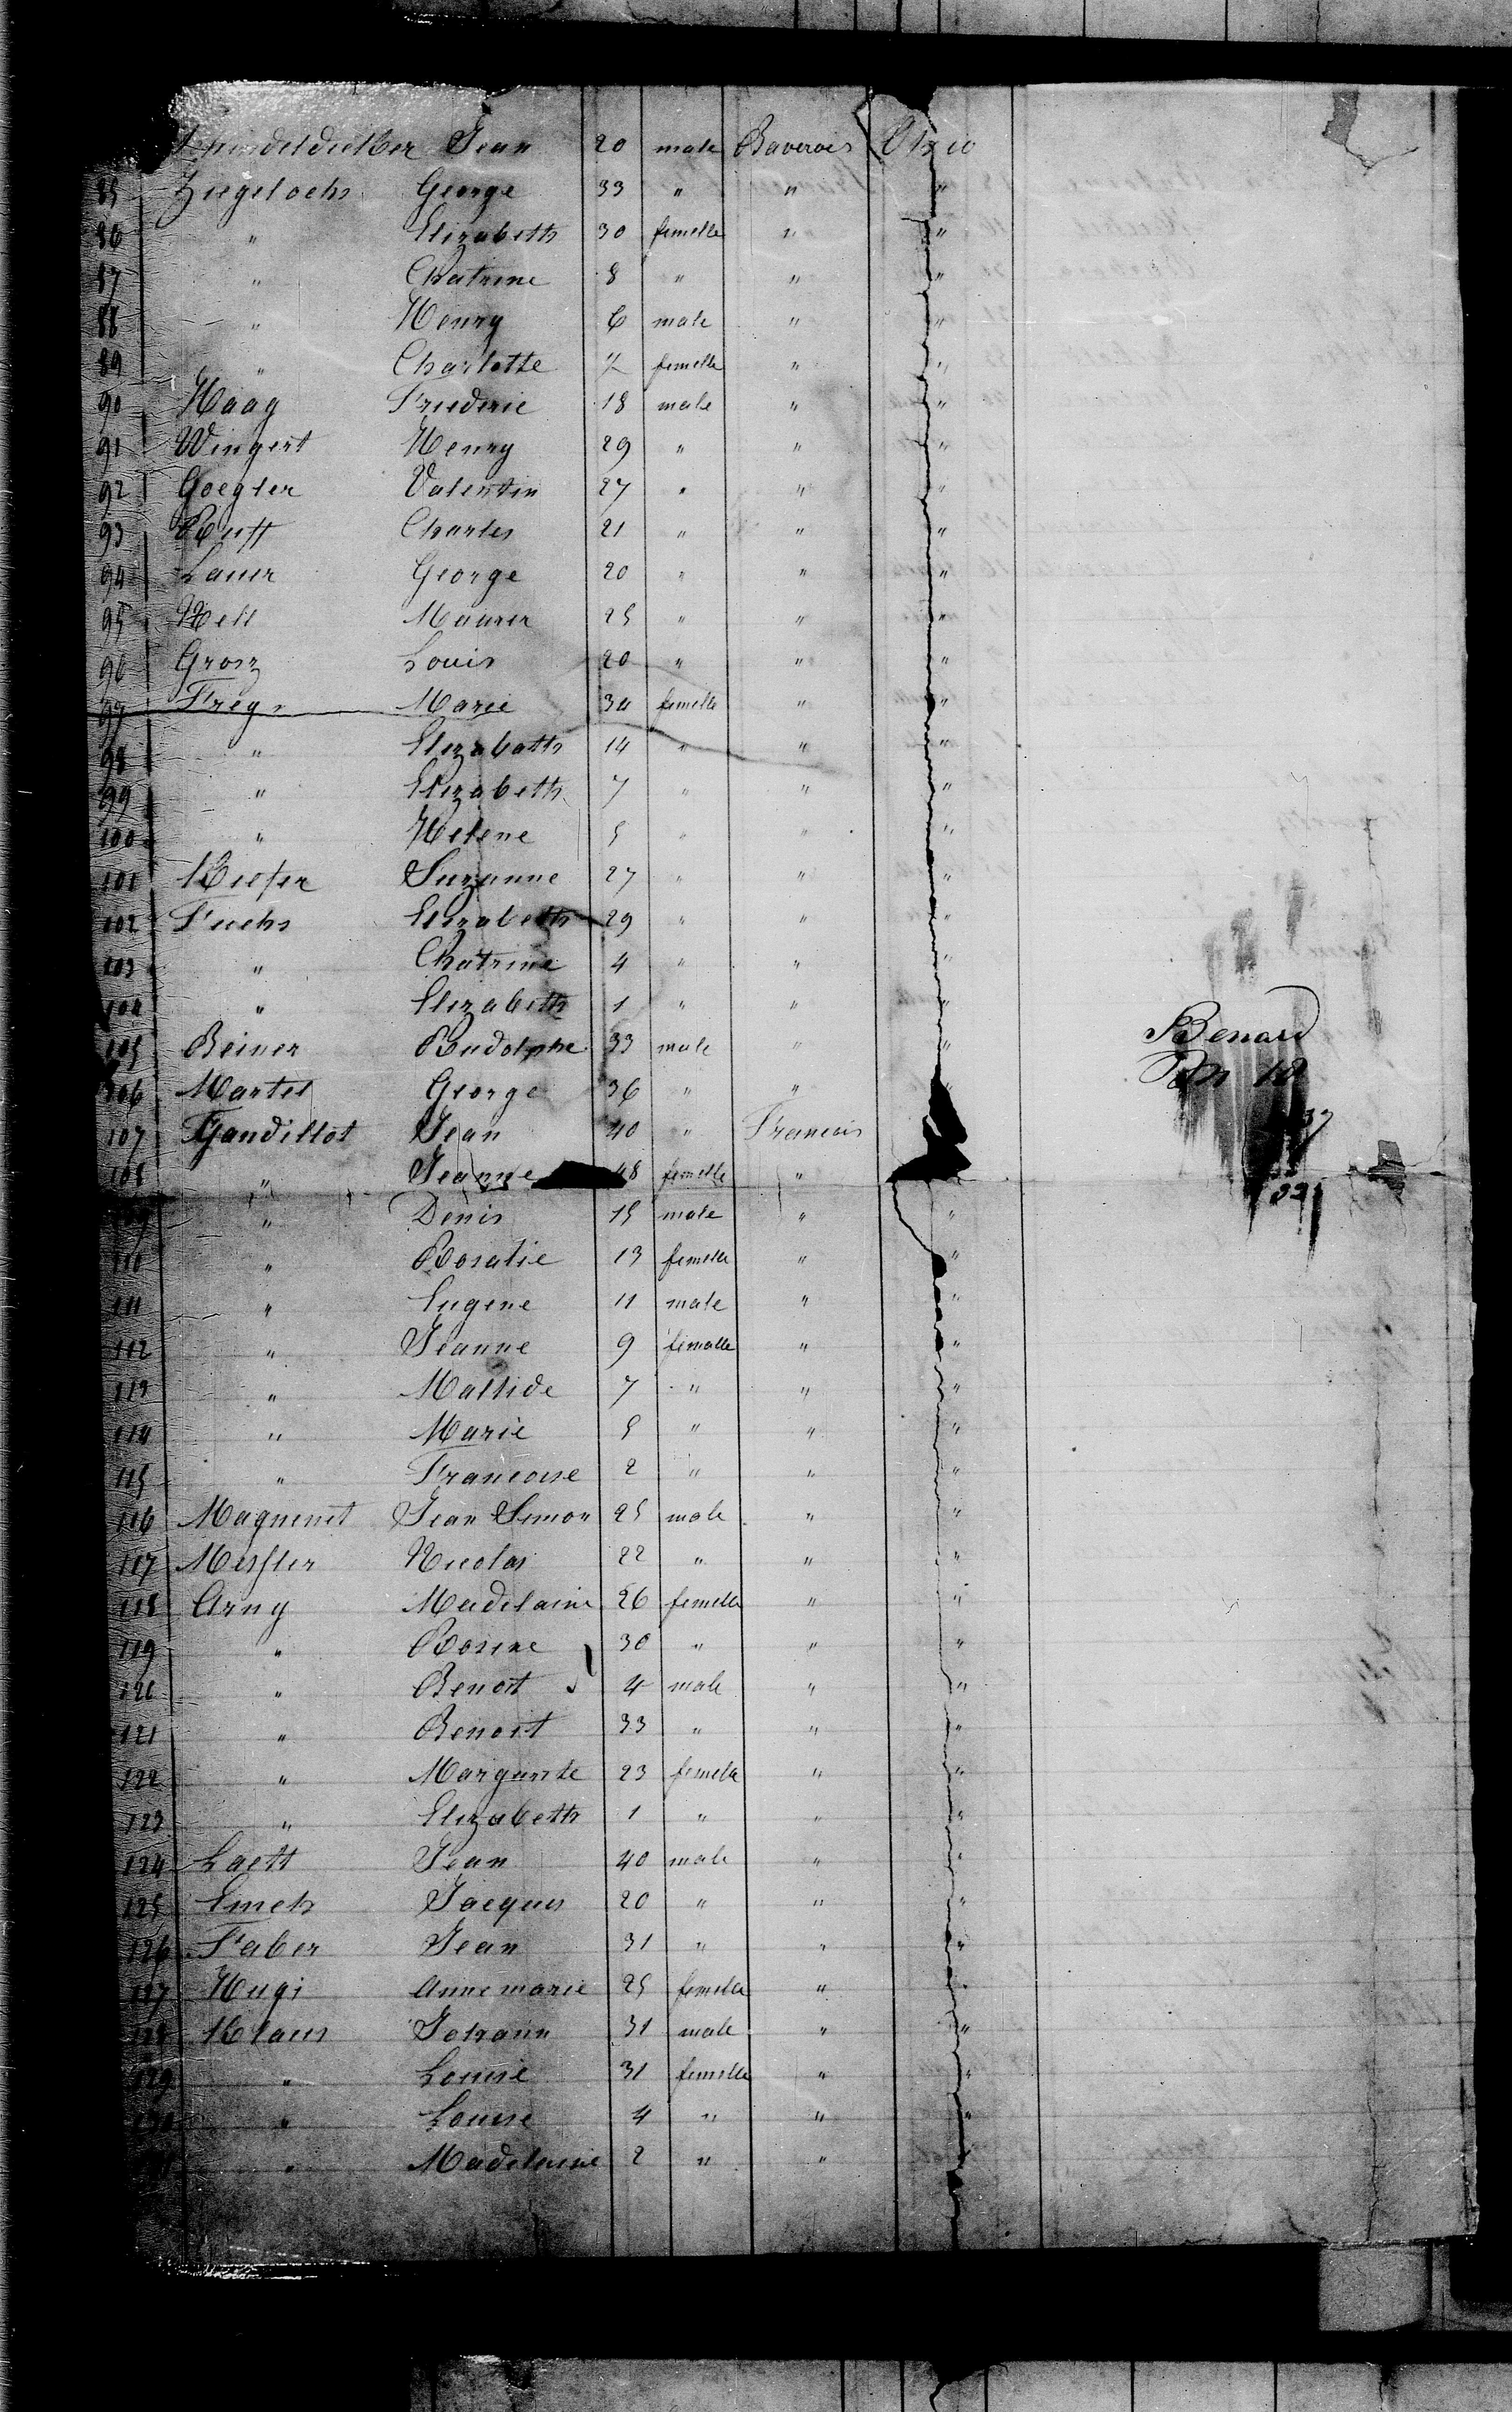 Jean 20 male Baverois Ohio
85 Ziegelochs George 33 " " "
86 " Elizabeth 30 femelle " "
87 " Chatrine 8 " " "
88 " Henry 6 male " "
89 " Charlotte femelle " "
90 Haag Friederic 18 male " "
91 Wingert Henry 29 " " "
92 Goegler Valentin 27 " " "
93 Ruff Charles 21 " " "
94 Lauer George 20 " " "
95 Hell Maurer 25 " " "
96 Grosz Louis 20 " " "
97 Marie 34 femelle " "
98 " Elizabeth 14 " " "
99 " Elizabeth 7 " " "
100 " Helene 5 " " "
101 Kiefer Suzanne 27 " " "
102 Fuchs Elizabeth 29 " " "
103 " Chatrine 4 " " "
104 " Elizabeth 1 " " "
105 Beiner Rudolphe 33 male " "
Benard
106 Martel George 36 " " "
107 Gandillot Jean 40 " Francois
37
108 " Jeanne 48 femelle "
" Denis 15 male " "
110 " Rosalie 13 femelle " "
111 " Eugene 11 male " "
112 " Jeanne 9 femelle " "
113 " Matlide 7 " " "
114 " Marie 5 " " "
115 " Francoise 2 " " "
116 Magnenet Jean Simon 25 male " "
117 Nicolas 22 " " "
118 Arny Madelaine 26 femelle " "
119 " Rosine 30 " " "
120 " Benoit 4 male " "
121 " Benoit 33 " " "
122 " Marguerite 23 femelle " "
123 " Elizabeth 1 " " "
124 Laett Jean 40 male " "
125 Emch Jacques 20 " " "
126 Faber Jean 31 " " "
127 Hugi Anne marie 25 femelle " "
128 Klaus Johann 31 male " "
129 " Louise 31 femelle " "
130 " Louise 4 " " "
" Madelaine 2 " "